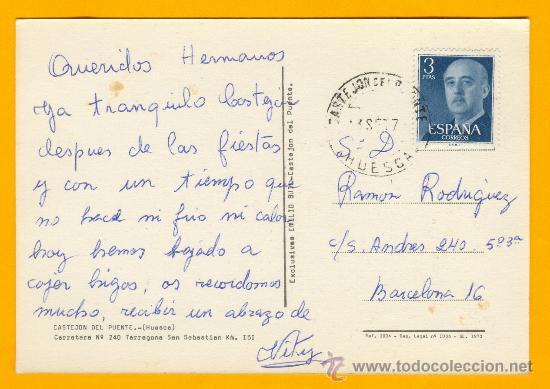 Queridos Hermanos
Ya tranquilo Castejon
despues de las fiestas
y con un tiempo que
no hace ni frio ni calor
hoy hemos bajado a
cojer higos, os recordamos
mucho, recibir un abrazo de
Vity
CASTEJON DEL PUENTE.-(Huesca)
Carretera Nº 240 Tarragona San Sebastian Km. 151
Exclusivas EMILIO BUIL-Castejon del Puente.
CASTEJON DEL PUENTE
HUESCA
3
PTAS
ESPAÑA
CORREOS
S. D.
Ramon Rodriguez
C/S. Andres 240 5º3ª
Barcelona 16
Dep. Legal nº
todocoleccion.net